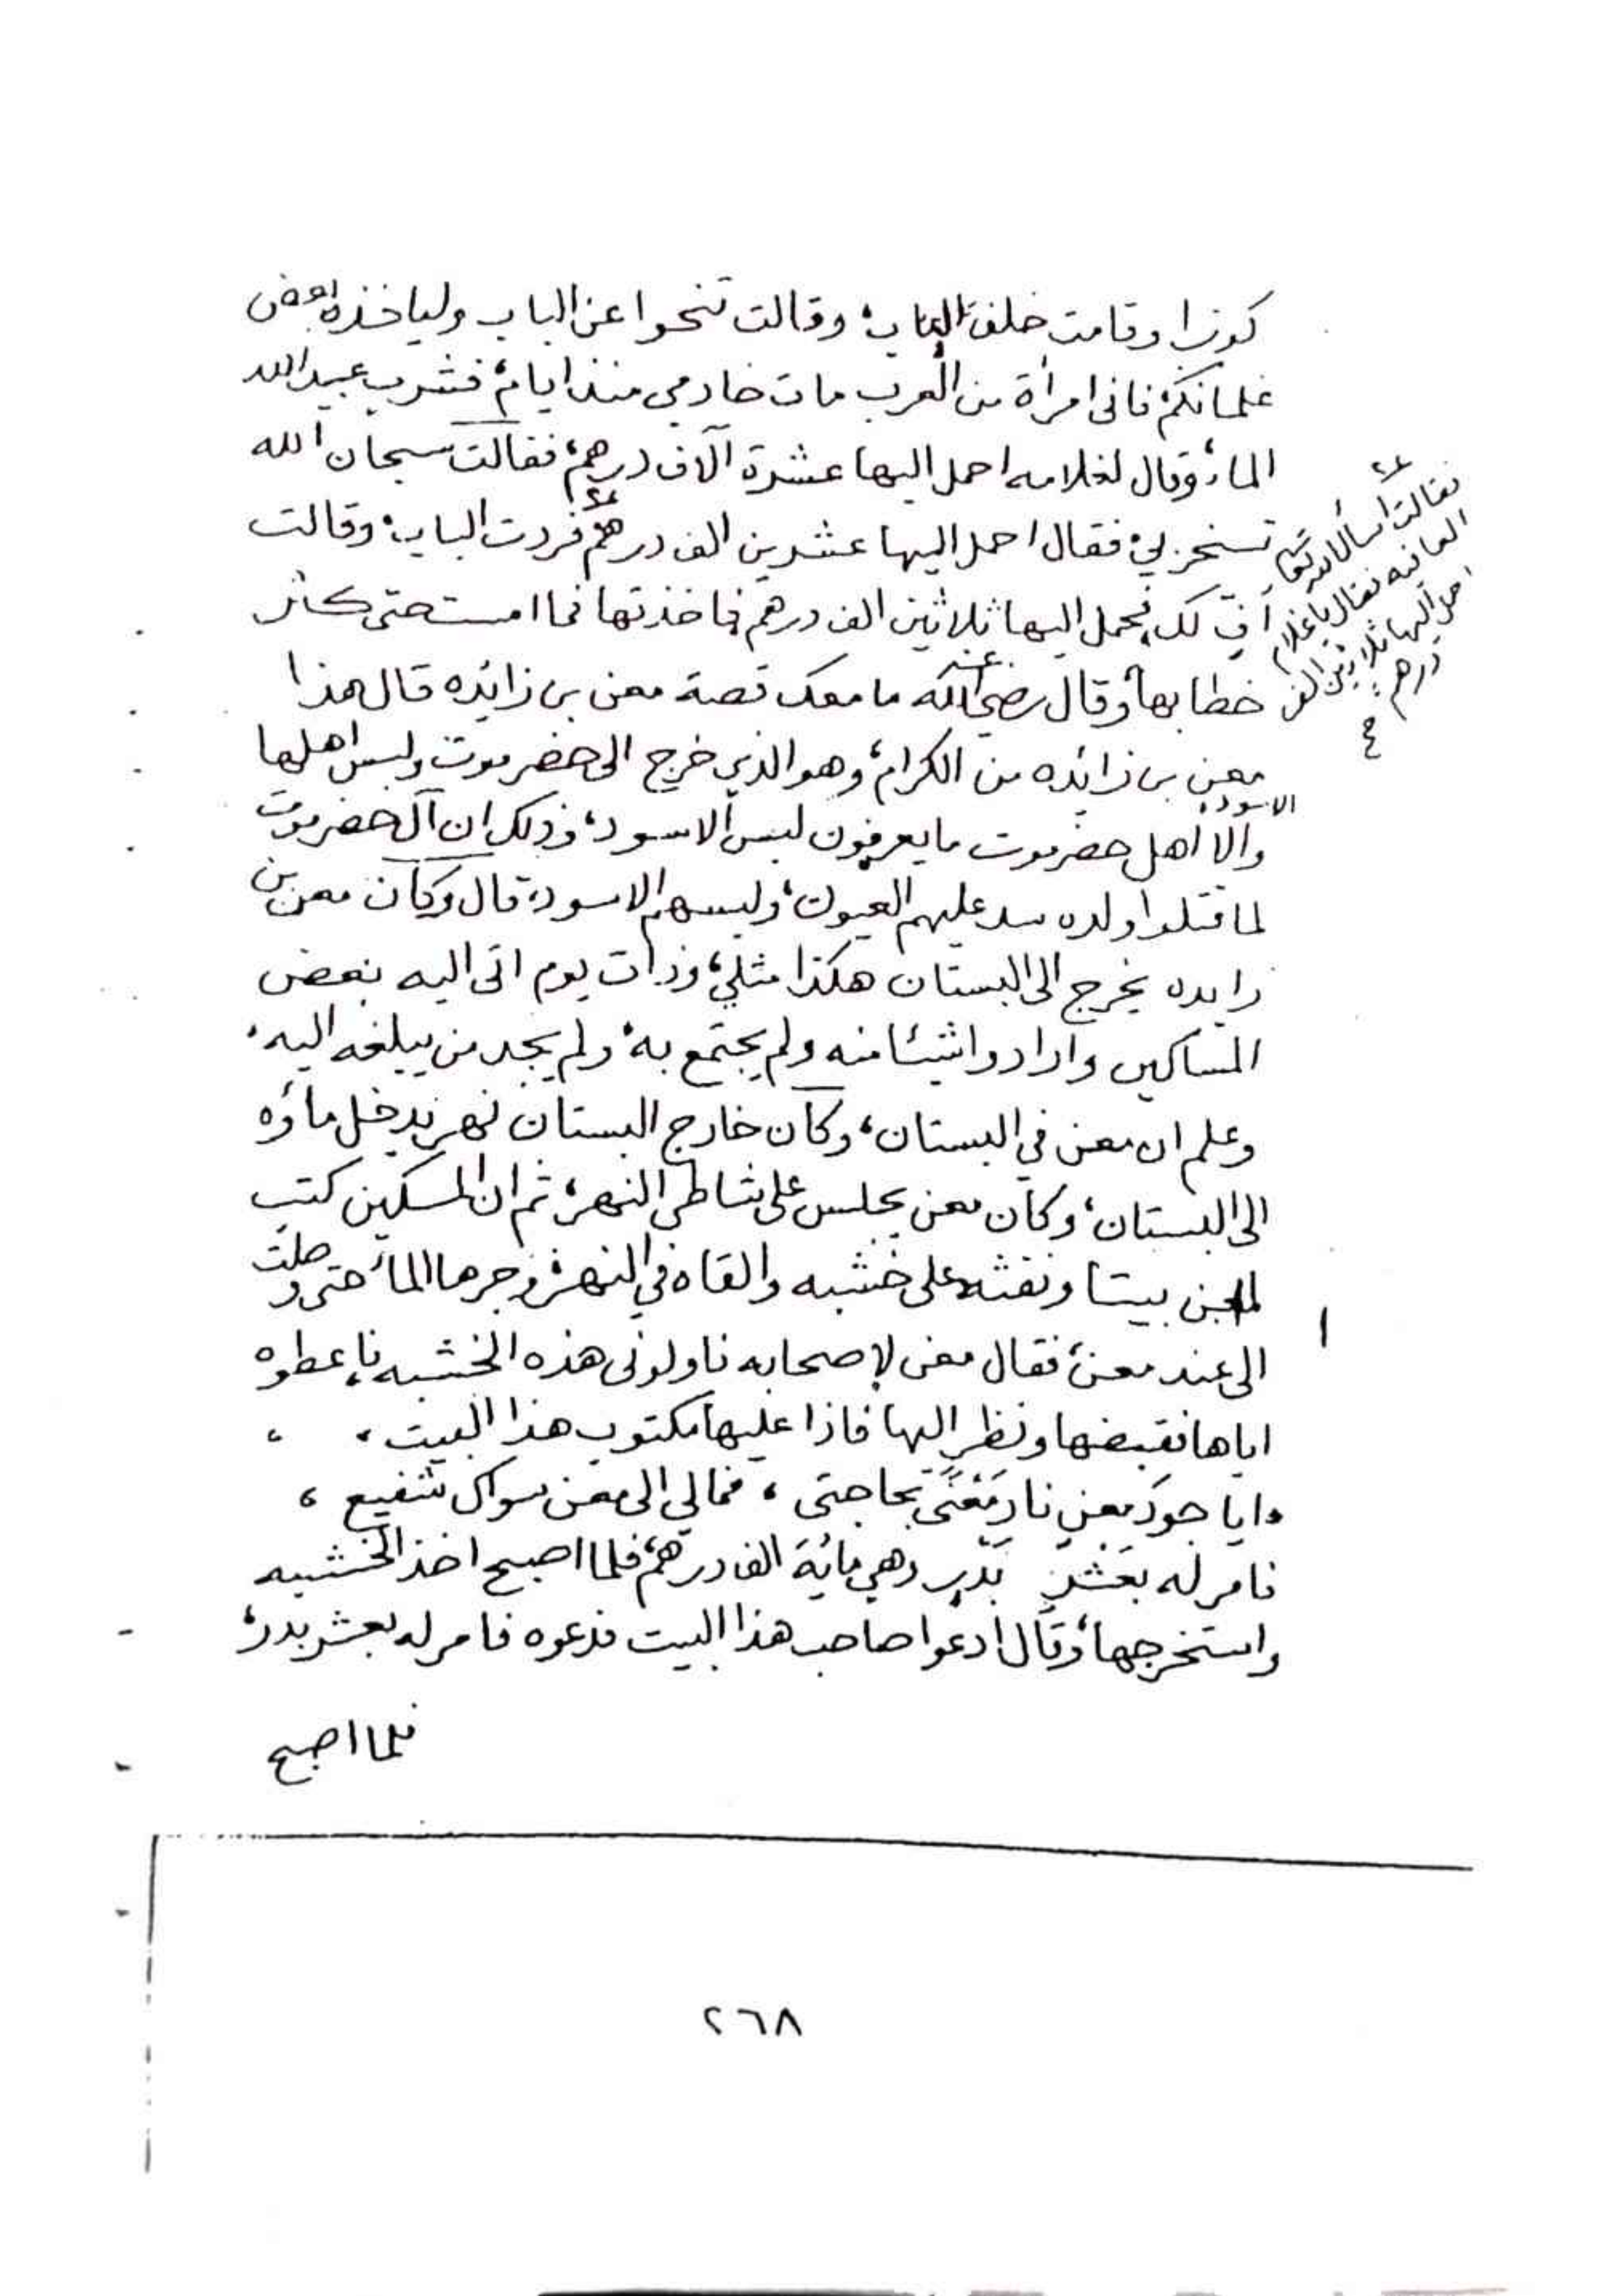 كوزا وقامت خلف الباب، وقالت تنحوا عن الباب ولياخذه بعض
غلمانكم، فاني امرأة من العرب مات خادمي منذ ايام، فشرب عبيدالله
الماء، وقال لغلامه احمل اليها عشرة آلاف درهم، فقالت سبحان الله
تسخر بي، فقال احمل اليها عشرين الف درهم فردت الباب، وقالت
فقالت اسأل الله
العافيه فقال يا غلام
احمل اليها ثلاثين الف
درهم
أف لك، فحمل اليها ثلاثين الف درهم، فاخذتها فما امست حتى كثر
خطابها، وقال رضي الله عنه ما معك قصة معن بن زائده قال هذا
معن بن زائده من الكرام، وهو الذي خرج الى حضرموت ولبس اهلها
الاسود،
والا أهل حضرموت ما يعرفون لبس الاسود، وذلك ان آل حضرموت
لما قتلوا ولده سد عليهم العيون، ولبسهم الاسود، قال وكان معن بن
زايده يخرج الى البستان هكذا مثلي، وذات يوم اتى اليه بعض
المساكين وارادوا شيئا منه ولم يجتمع به، ولم يجد من يبلغه اليه،
وعلم ان معن في البستان، وكان خارج البستان نهر يدخل ماؤه
الى البستان، وكان معن يجلس على شاطي النهر، ثم ان المسكين كتب
لمعن بيتا ونقشه على خشبه والقاه في النهر، وجرها الماء حتى وصلت
الى عند معن، فقال معن لاصحابه ناولوني هذه الخشبه، فاعطوه
اياها فقبضها ونظر اليها فاذا عليها مكتوب هذا البيت، ،
، ايا جود معن ناد معنًى بحاجتي ، فمالي الى معن سواك شفيع ،
فامر له بعشر بدر وهي مائة الف درهم، فلما اصبح اخذ الخشبه
واستخرجها، وقال ادعوا صاحب هذا البيت فدعوه فامر له بعشر بدر،
فلما اصبح
٢٦٨